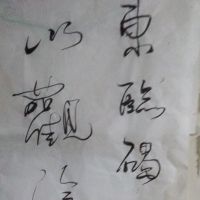 東臨碣
以觀滄